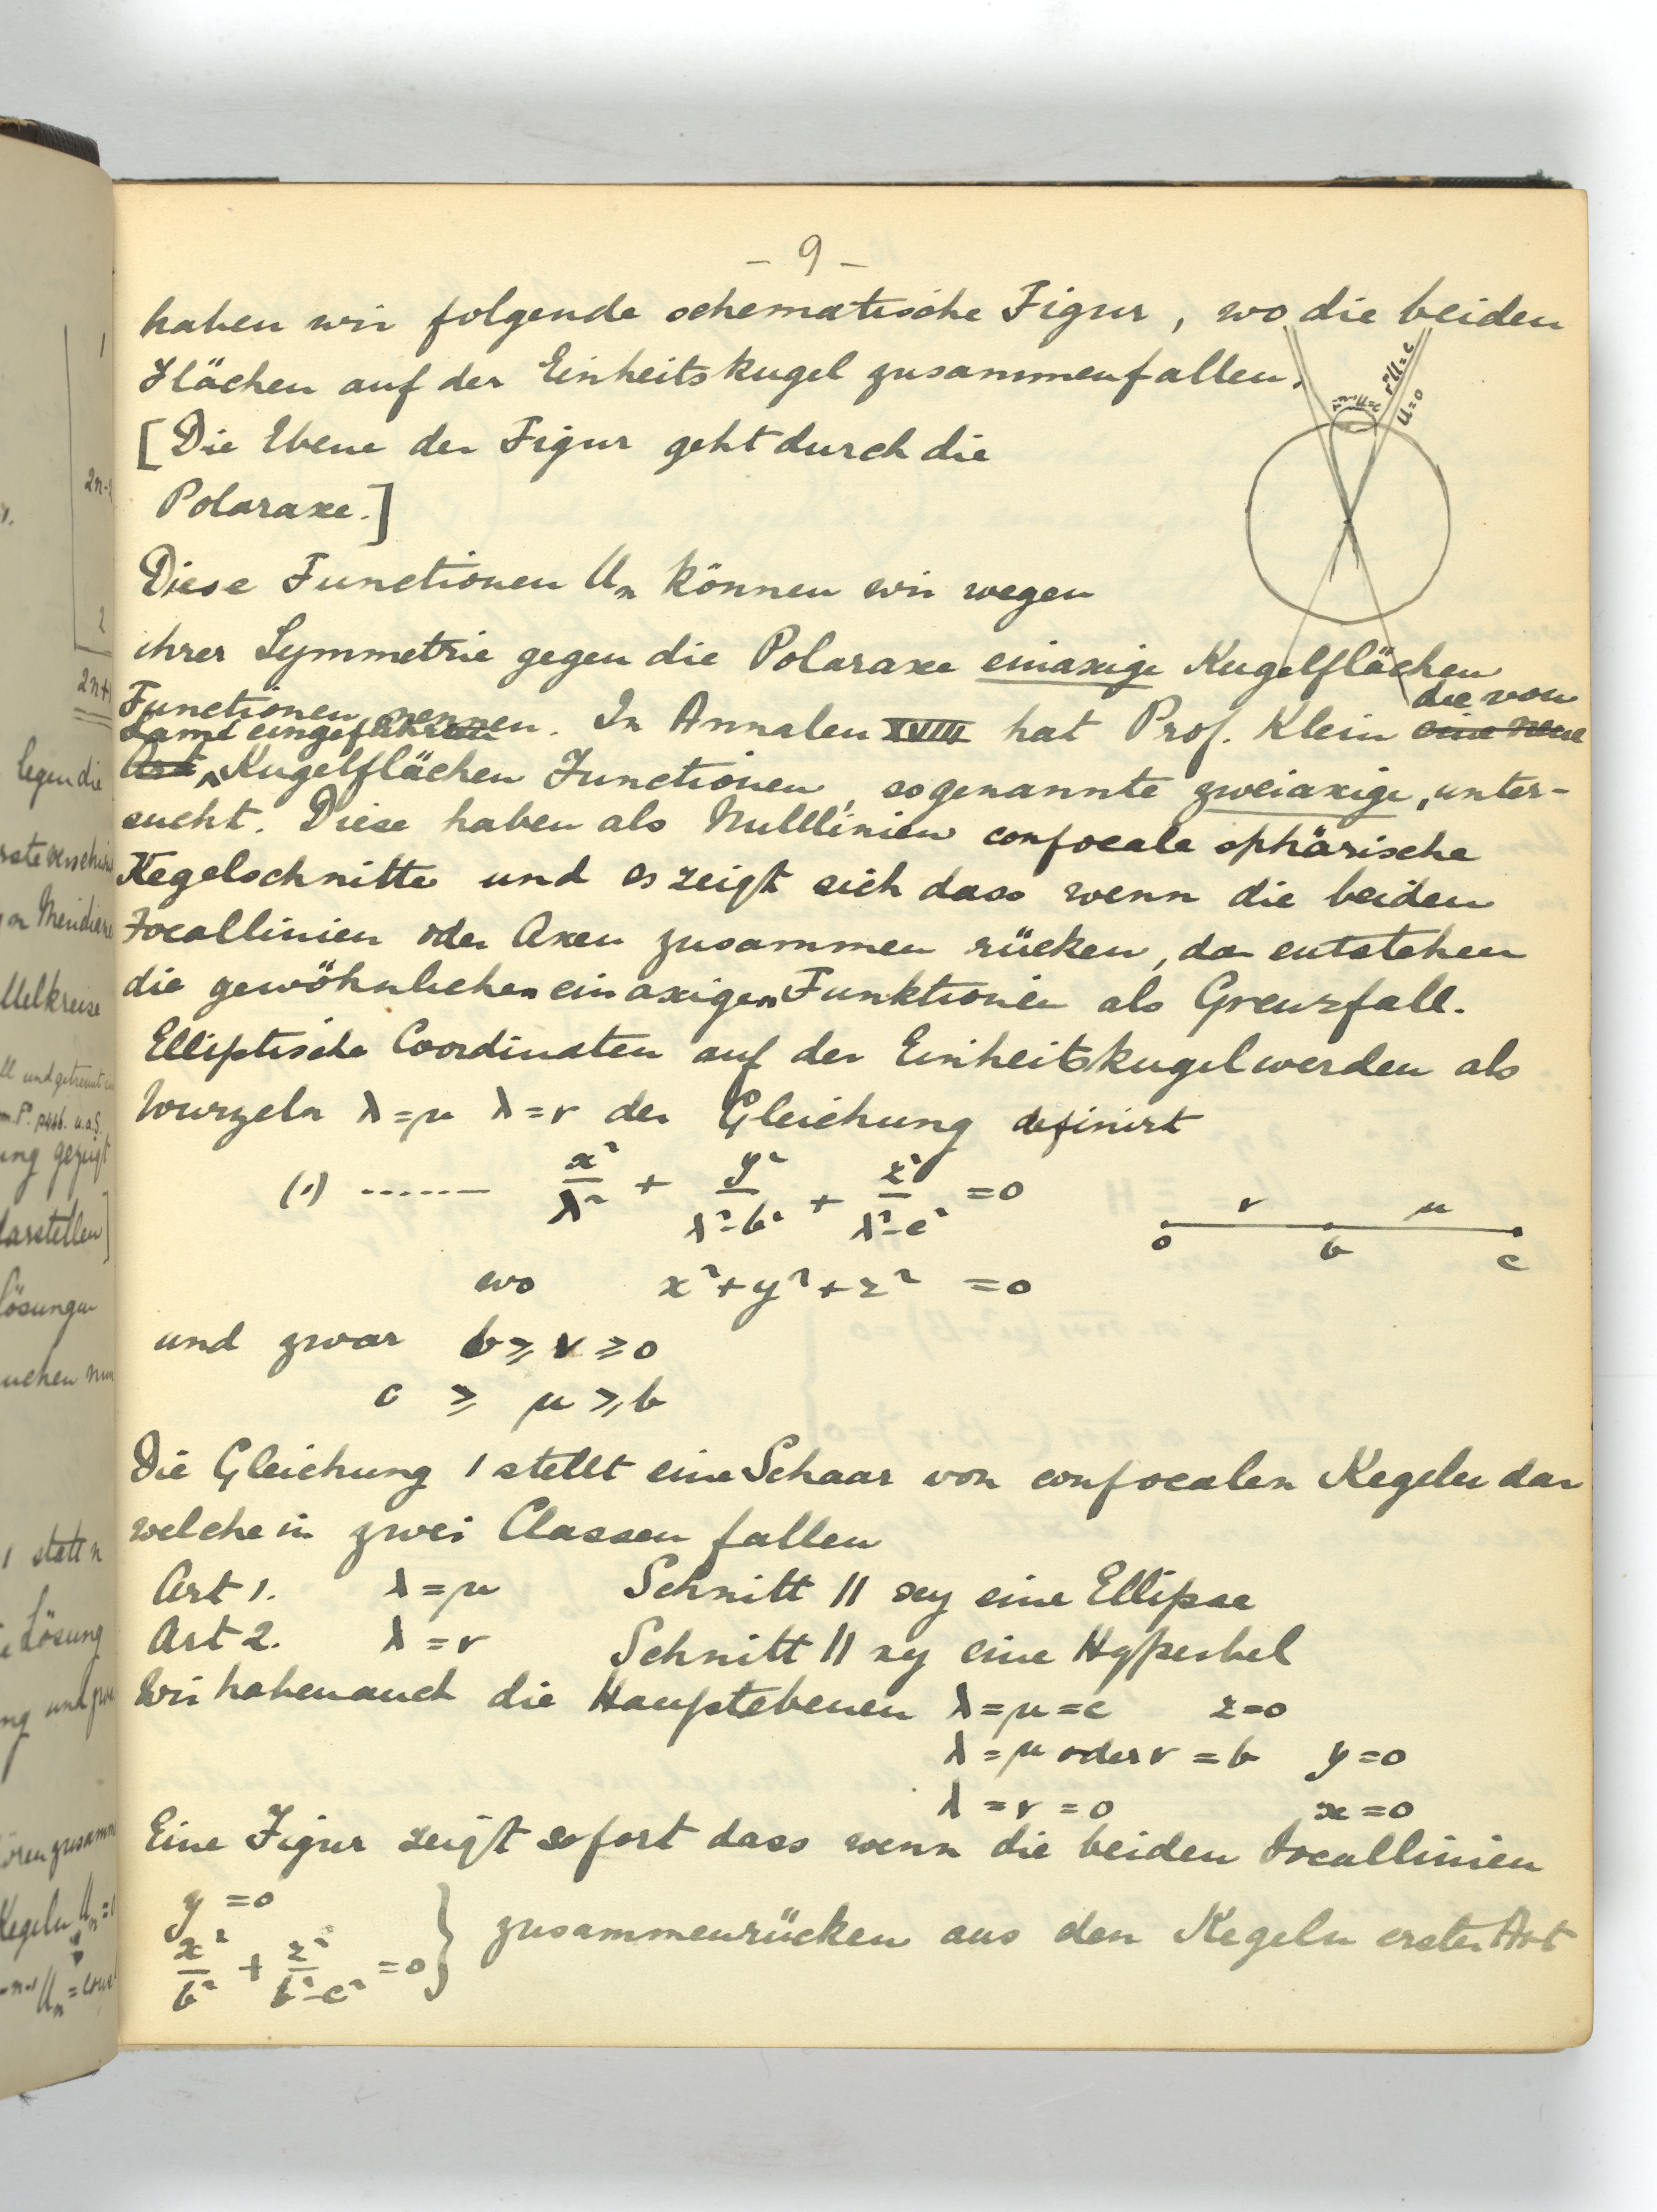 - 9 -
haben wir folgende schematische Figur, wo die beiden
Flächen auf der Einheitskugel zusammenfallen.
[Die Ebene der Figur geht durch die
Polaraxe.]
U=0
Diese Functionen Uₙ können wir wegen
ihrer Symmetrie gegen die Polaraxe einaxige Kugelflächen
Functionen nennen. In Annalen XVIII hat Prof. Klein eine neue die von
Art Lamé eingeführten Kugelflächen Functionen, sogenannte zweiaxige, unter-
sucht. Diese haben als Nulllinien confocale sphärische
Kegelschnitte und es zeigt sich dass wenn die beiden
Focallinien oder Axen zusammen rücken, da entstehen
die gewöhnlichen einaxigen Funktionen als Grenzfall.
Elliptische Coordinaten auf der Einheitskugel werden als
Wurzeln λ=μ λ=ν der Gleichung definirt
(1) ------ x²/λ² + y²/λ²-b² + z²/λ²-c² =0
ν μ
0 b c
wo x²+y²+z² =0
und zwar b ≥ ν ≥ 0
c ≥ μ ≥ b
Die Gleichung 1 stellt eine Schaar von confocalen Kegeln dar
welche in zwei Classen fallen
Art 1. λ=μ Schnitt || xy eine Ellipse
Art 2. λ=ν Schnitt || xy eine Hyperbel
Wir haben auch die Hauptebenen λ=μ=c z=0
λ=μ oder ν=b y=0
λ=ν=0 x=0
Eine Figur zeigt sofort dass wenn die beiden Focallinien
y=0
x²/b² + z²/b²-c² =0 } zusammenrücken aus den Kegeln erster Art